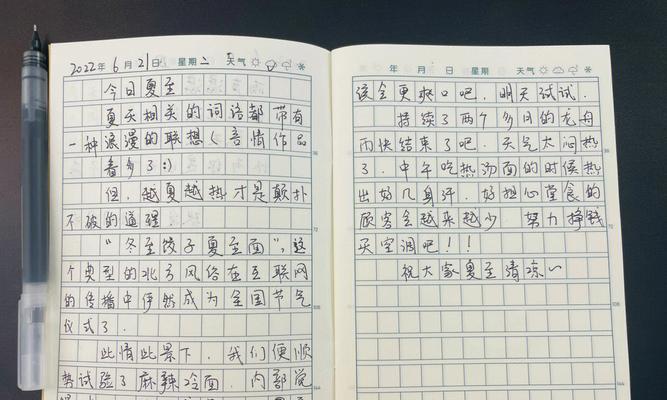 2022年 6月 21日 星期二 天气
今日夏至
夏天相关的词语都带有
一种浪漫的联想（言情作品
看多了:)
但,越夏越热才是颠扑
不破的道理.
“冬至饺子夏至面”,这
个典型的北方风俗在互联网
的传播中俨然成为全国节气
仪式了.
此情此景下,我们便顺
势试验了麻辣冷面.内部觉
年 月 日 星期 天气
该会更爽口吧.明天试试.
持续了两个多月的龙舟
雨快结束了吧.天气太闷热
了.中午吃热汤面的时候热
出好几身汗.好担心堂食的
顾客会越来越少.努力挣钱
买空调吧!!
祝大家夏至清凉~